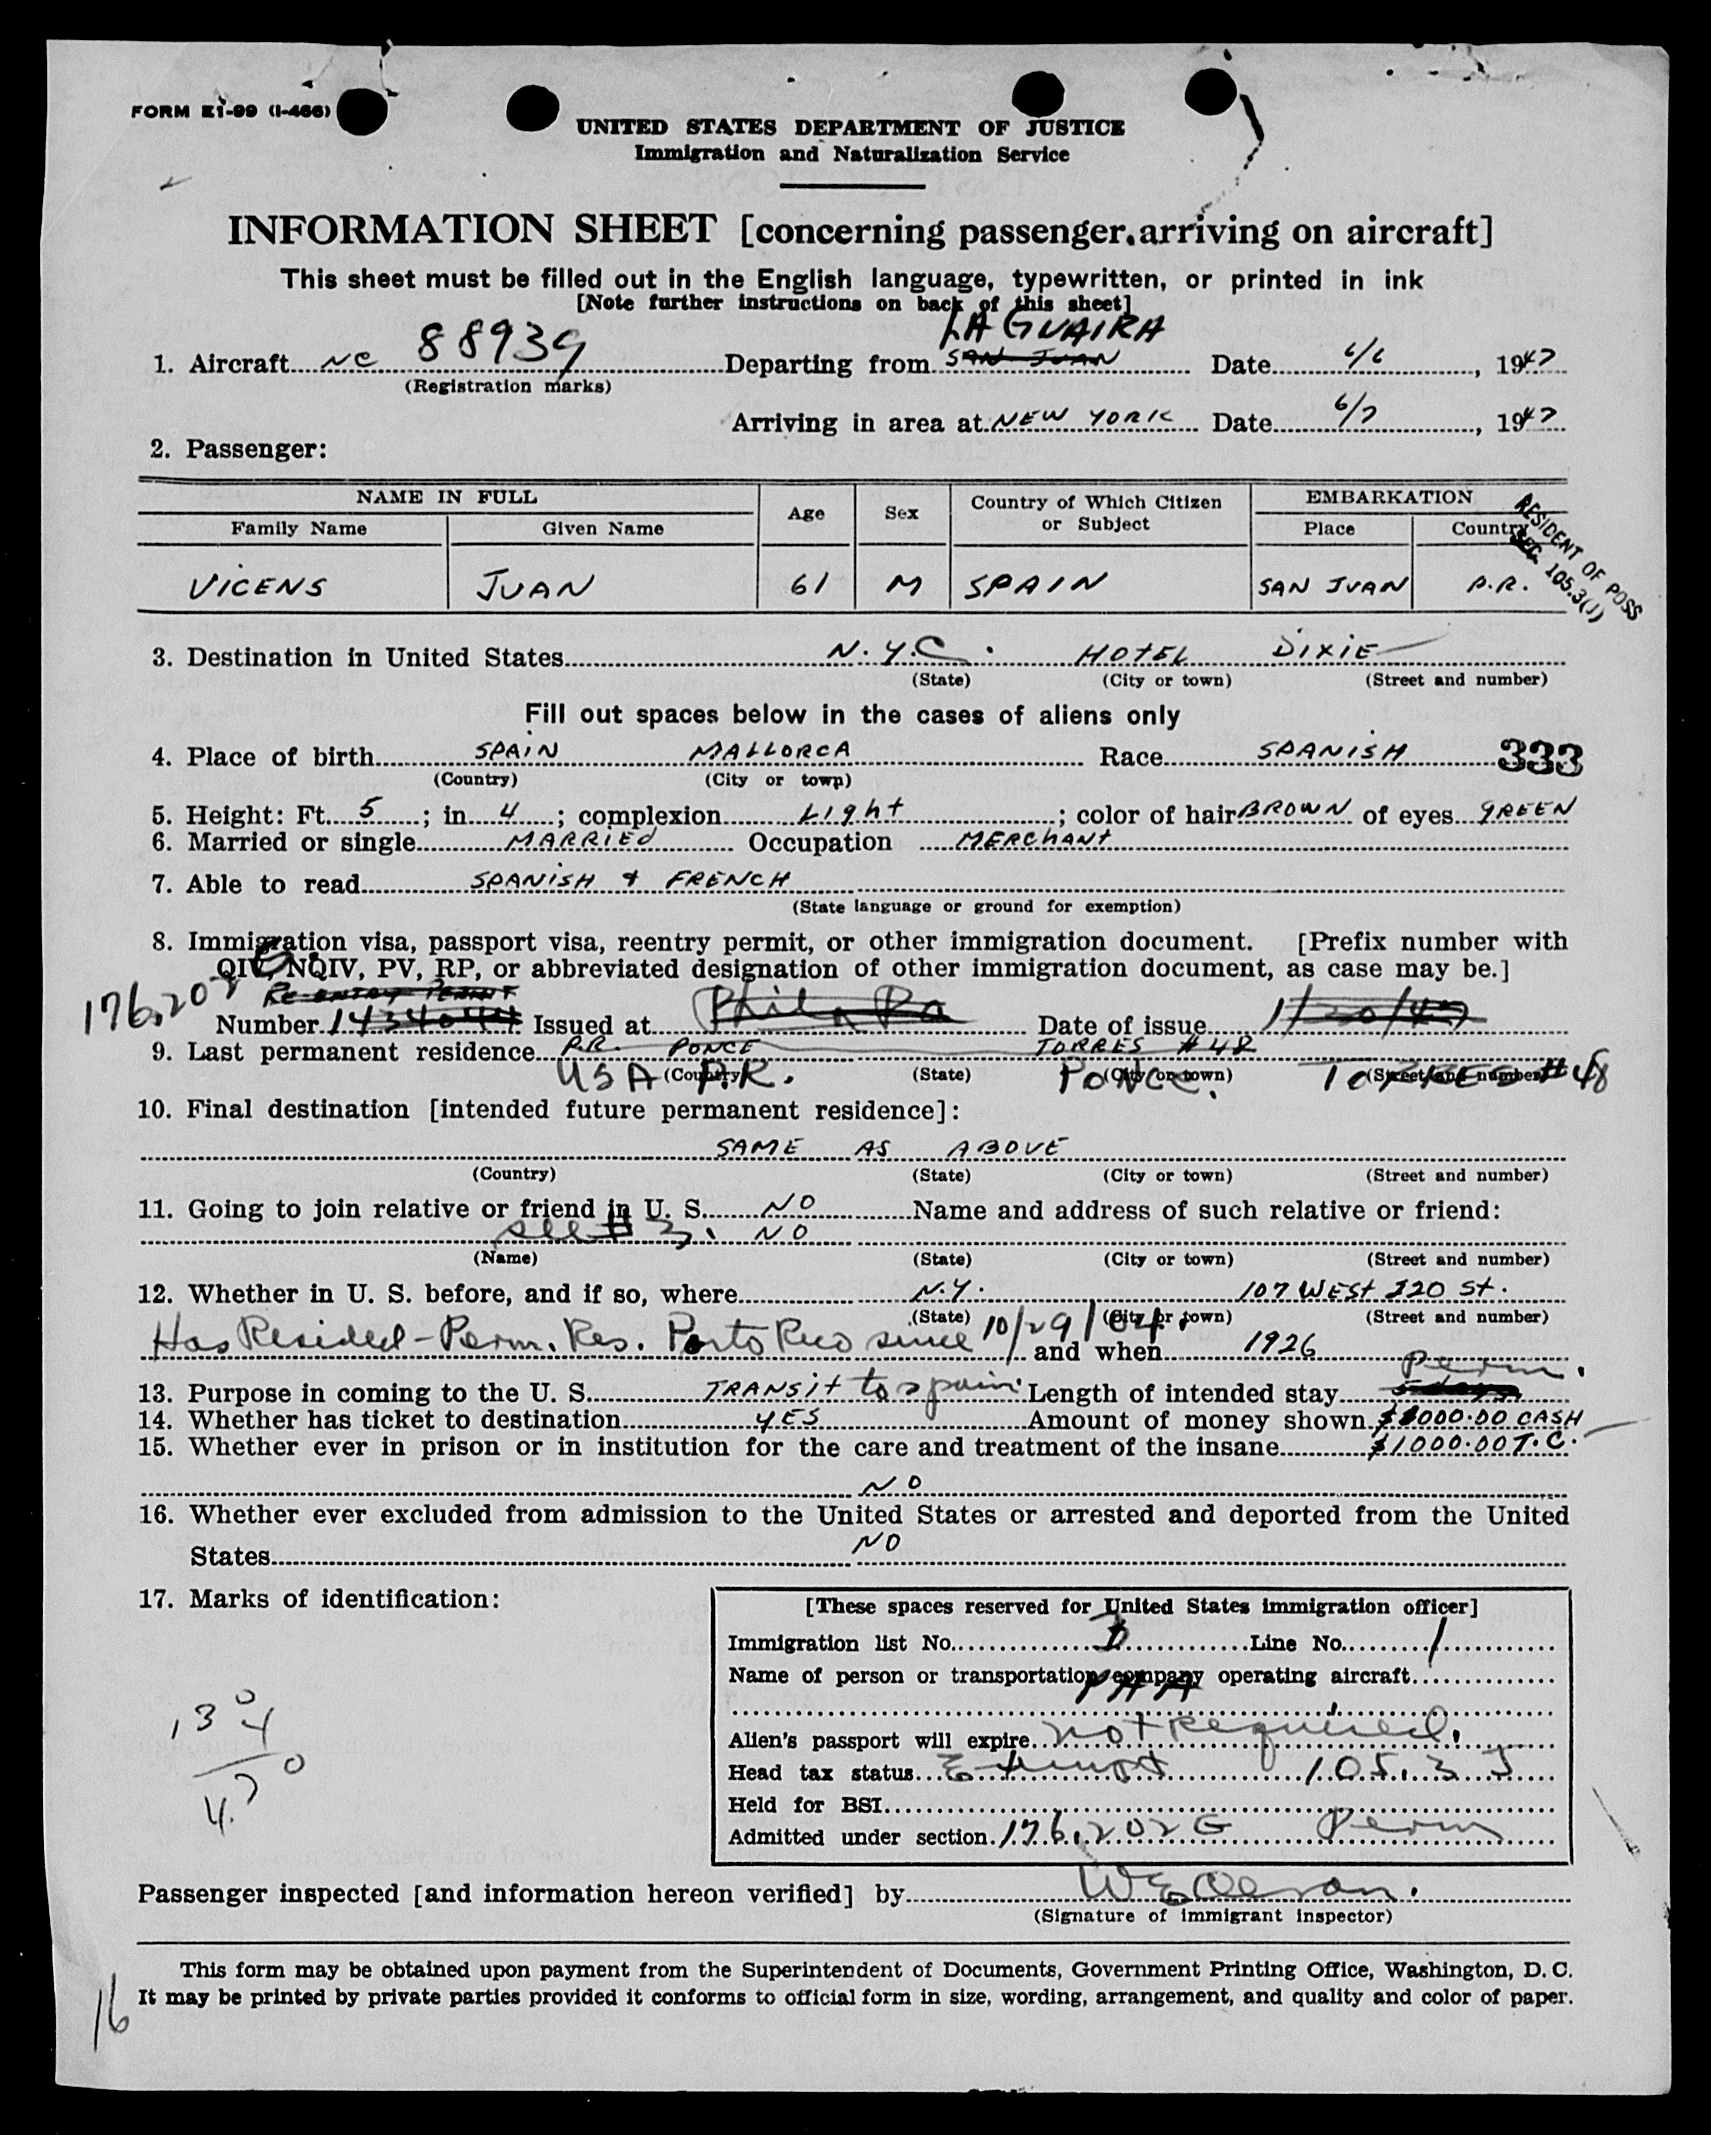 FORM E1-99 (I-466)
UNITED STATES DEPARTMENT OF JUSTICE
Immigration and Naturalization Service
INFORMATION SHEET [concerning passenger arriving on aircraft]
This sheet must be filled out in the English language, typewritten, or printed in ink
[Note further instructions on back of this sheet]
LA GUAIRA
1. Aircraft NC 88939 Departing from SAN JUAN Date 6/6, 1947
(Registration marks)
Arriving in area at NEW YORK Date 6/7, 1947
2. Passenger:
NAME IN FULL Age Sex Country of Which Citizen or Subject EMBARKATION
Family Name Given Name Place Country
RESIDENT OF POSS
SEC. 105.3(J)
VICENS JUAN 61 M SPAIN SAN JUAN P.R.
3. Destination in United States N.Y.C. HOTEL DIXIE
(State) (City or town) (Street and number)
Fill out spaces below in the cases of aliens only
4. Place of birth SPAIN MALLORCA Race SPANISH 333
(Country) (City or town)
5. Height: Ft. 5; in. 4; complexion Light; color of hair BROWN of eyes GREEN
6. Married or single MARRIED Occupation MERCHANT
7. Able to read SPANISH & FRENCH
(State language or ground for exemption)
8. Immigration visa, passport visa, reentry permit, or other immigration document. [Prefix number with
QIV, NQIV, PV, RP, or abbreviated designation of other immigration document, as case may be.]
176.202 G RE-ENTRY PERMIT
Number 1434044 Issued at Phila Pa Date of issue 1/30/47
9. Last permanent residence P.R. PONCE TORRES #48
(Country) (State) (City or town) (Street and number)
USA P.R. PONCE. TORRES #48
10. Final destination [intended future permanent residence]:
SAME AS ABOVE
(Country) (State) (City or town) (Street and number)
11. Going to join relative or friend in U. S. NO Name and address of such relative or friend:
see # 3. NO
(Name) (State) (City or town) (Street and number)
12. Whether in U. S. before, and if so, where N.Y. 107 WEST 120 St.
(State) (City or town) (Street and number)
Has Resided - Perm. Res. Porto Rico since 10/29/04. and when 1926
13. Purpose in coming to the U. S. TRANSIT to Spain. Length of intended stay 5 days Perm.
14. Whether has ticket to destination YES Amount of money shown $1000.00 CASH
15. Whether ever in prison or in institution for the care and treatment of the insane $1000.00 T.C.
NO
16. Whether ever excluded from admission to the United States or arrested and deported from the United
States NO
17. Marks of identification:
[These spaces reserved for United States immigration officer]
Immigration list No. 3 Line No. 1
Name of person or transportation company operating aircraft
PAA
Alien's passport will expire not Required.
Head tax status Exempt 105.3 J
Held for BSI
Admitted under section 176.202 G Perm
Passenger inspected [and information hereon verified] by
(Signature of immigrant inspector)
This form may be obtained upon payment from the Superintendent of Documents, Government Printing Office, Washington, D. C.
It may be printed by private parties provided it conforms to official form in size, wording, arrangement, and quality and color of paper.
16